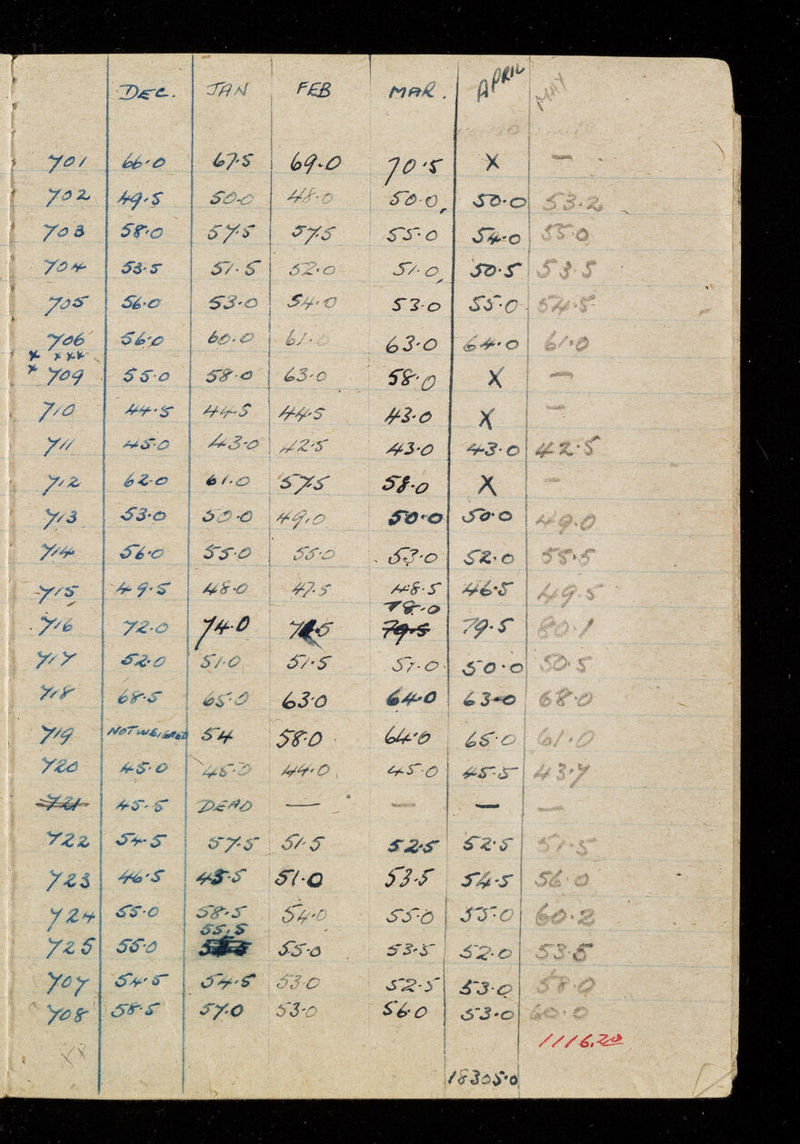 DEC. JAN FEB MAR. APRIL MAY
701 66.0 67.5 69.0 70.5 X —
702 49.5 50.0 48.0 50.0 50.0 53.2
703 58.0 57.5 57.5 55.0 54.0 55.0
704 53.5 51.5 52.0 51.0 50.5 53.5
705 56.0 53.0 54.0 53.0 55.0 54.5
706 56.0 60.0 61.0 63.0 64.0 61.0
x xxx
x 709 55.0 58.0 63.0 58.0 X —
710 44.5 44.5 44.5 43.0 X —
711 45.0 43.0 42.5 43.0 43.0 42.5
712 62.0 61.0 57.5 58.0 X —
713 53.0 50.0 49.0 50.0 50.0 49.0
714 56.0 55.0 55.0 53.0 52.0 55.5
715 49.5 48.0 47.5 48.5 46.5 49.5
78.0
716 72.0 74.0 79.5 79.5 80.1
717 52.0 51.0 51.5 51.0 50.0 50.5
718 68.5 65.0 63.0 64.0 63.0 68.0
719 NOT WEIGHED 54 58.0 64.0 65.0 61.0
720 45.0 45.0 44.0 45.0 45.5 43.7
721 45.5 DEAD — — — —
722 54.5 57.5 51.5 52.5 52.5 51.5
723 46.5 45.5 51.0 53.5 54.5 56.0
724 55.0 58.5 54.0 55.0 55.0 60.2
55.5
725 55.0 55.0 53.5 52.0 53.5
707 54.5 54.5 53.0 52.5 53.0 58.0
708 58.5 57.0 53.0 56.0 53.0 60.0
1116.20
XX
18305.0